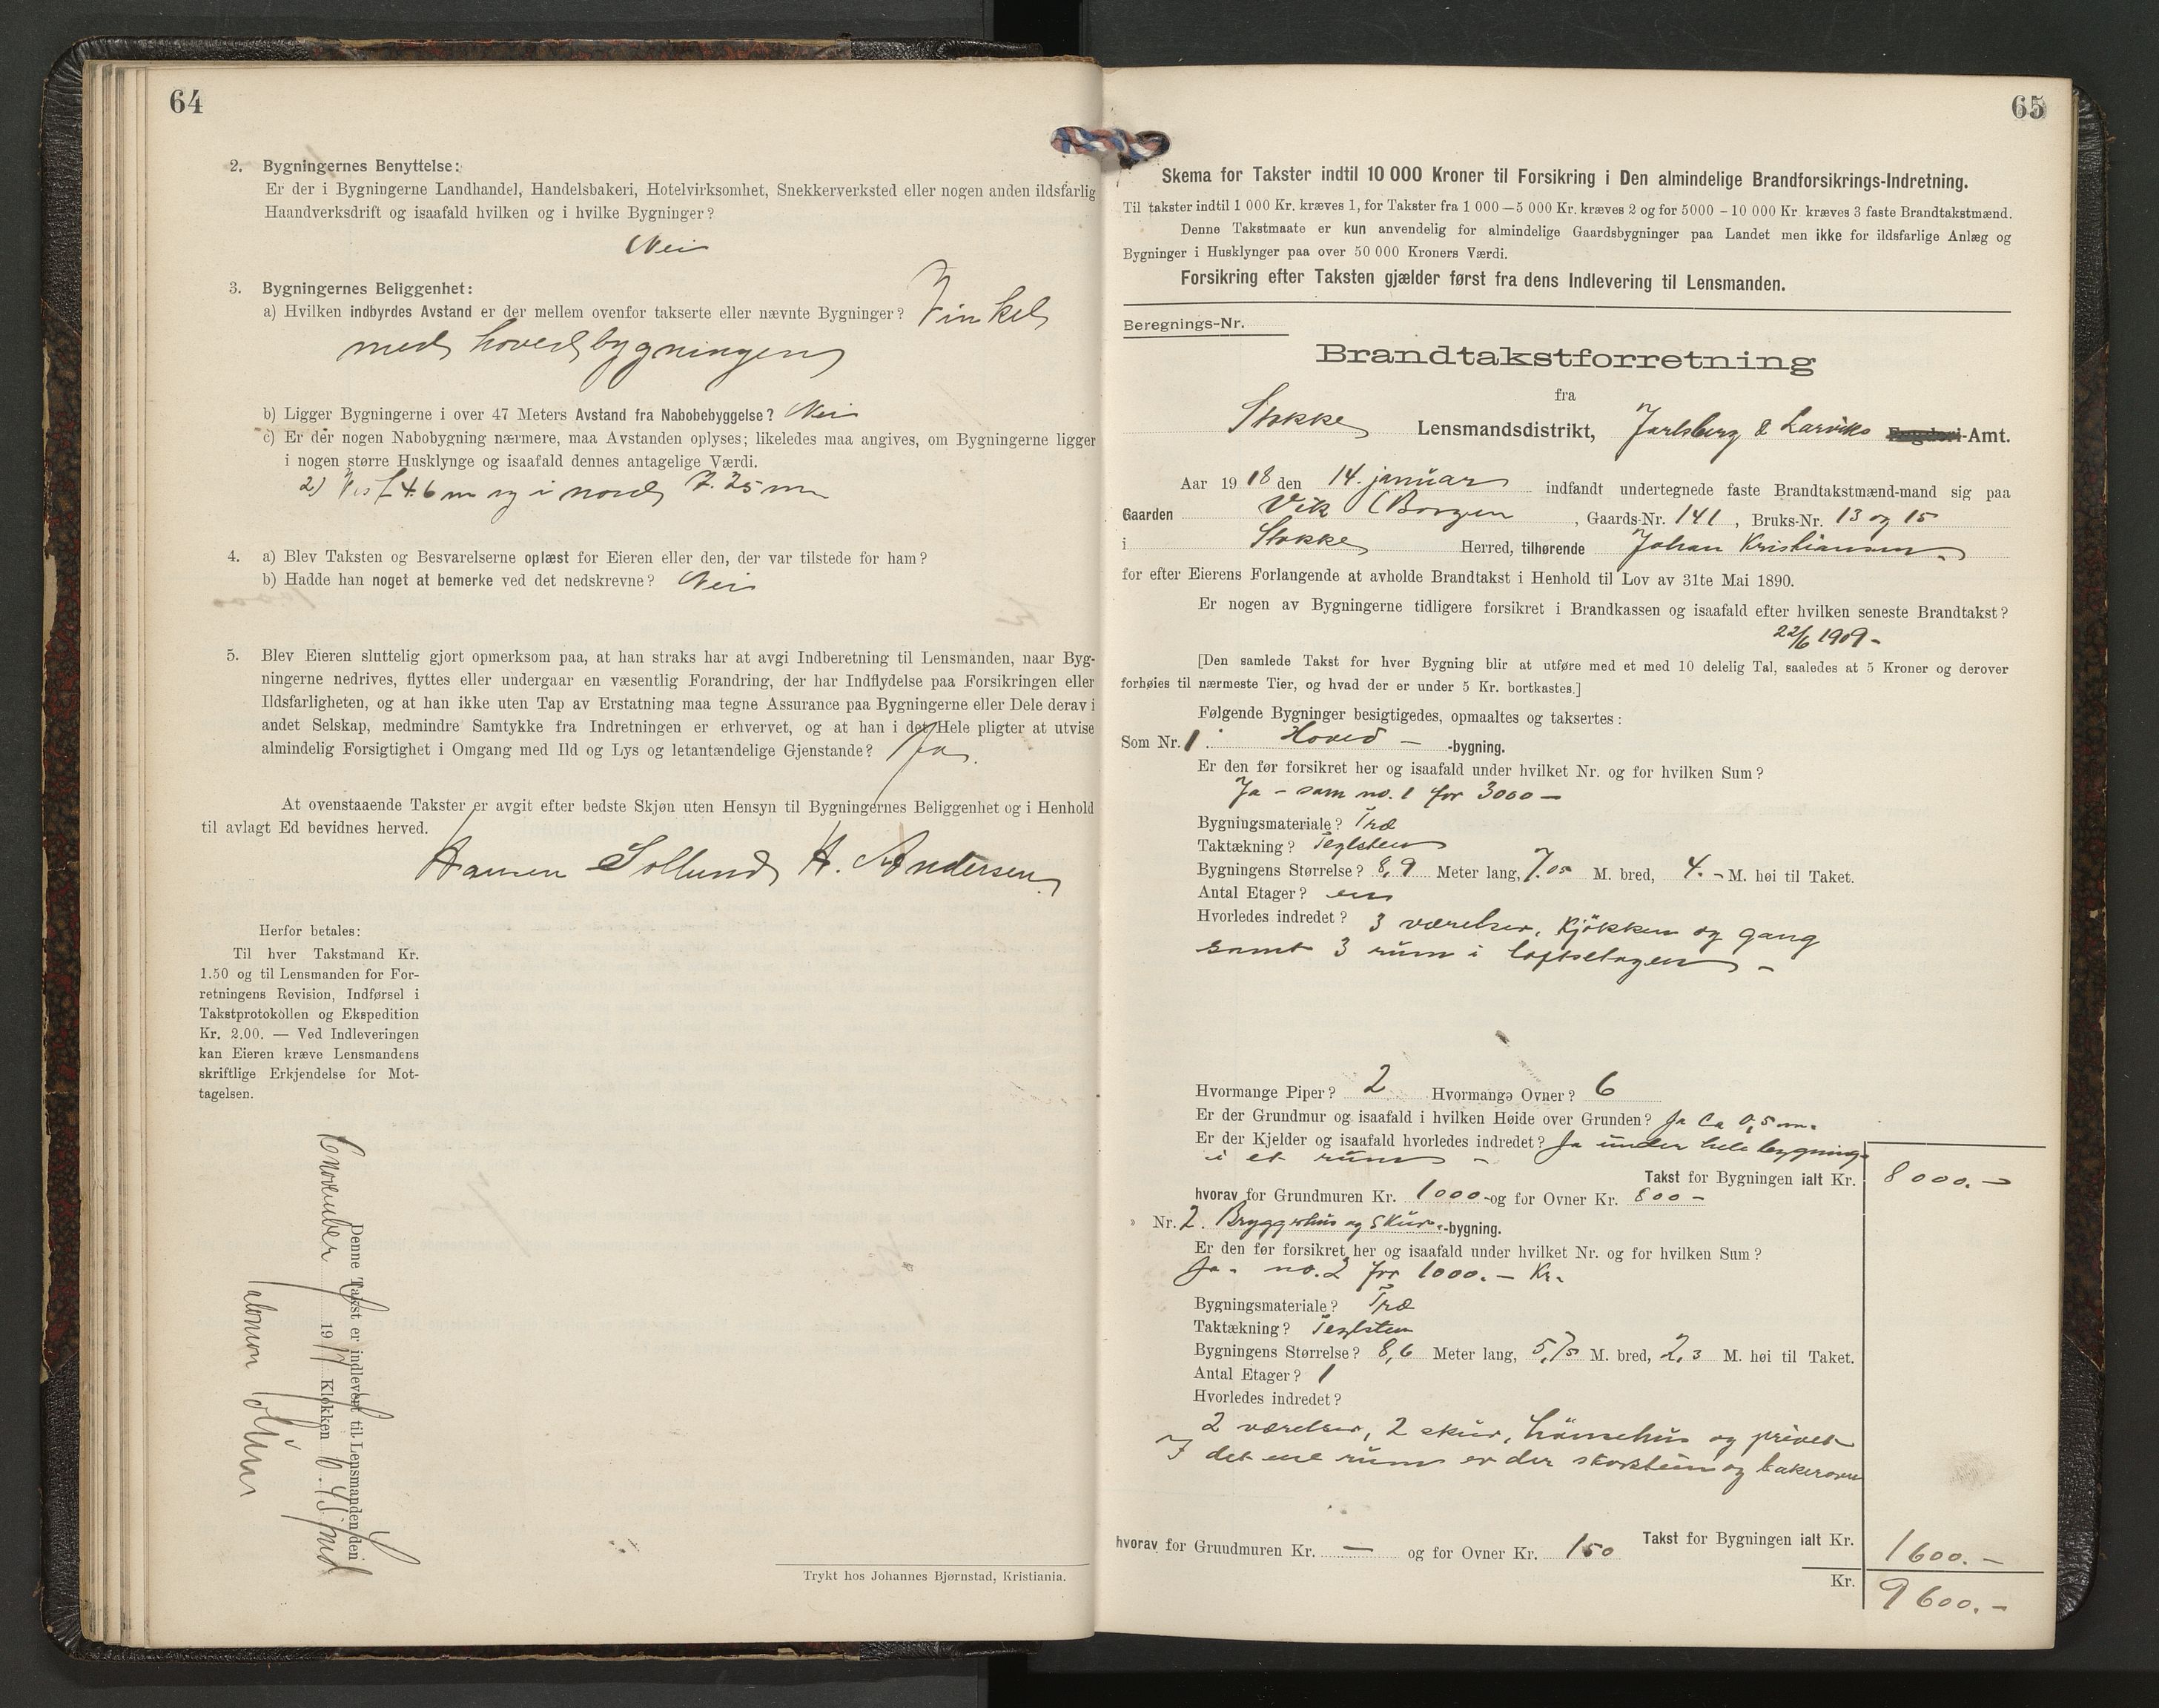 64
2. Bygningernes Benyttelse:
Er der i Bygningerne Landhandel, Handelsbakeri, Hotelvirksomhet, Snekkerverksted eller nogen anden ildsfarlig
Haandverksdrift og isaafald hvilken og i hvilke Bygninger?
Nei
3. Bygningernes Beliggenhet:
a) Hvilken indbyrdes Avstand er der mellem ovenfor takserte eller nævnte Bygninger? Vinkel
med hovedbygningen
b) Ligger Bygningerne i over 47 Meters Avstand fra Nabobebyggelse? Nei
c) Er der nogen Nabobygning nærmere, maa Avstanden oplyses; likeledes maa angives, om Bygningerne ligger
i nogen større Husklynge og isaafald dennes antagelige Værdi.
2) Vest 4.6 m og i nord 7.25 m
4. a) Blev Taksten og Besvarelserne oplæst for Eieren eller den, der var tilstede for ham?
b) Hadde han noget at bemerke ved det nedskrevne? Nei
5. Blev Eieren sluttelig gjort opmerksom paa, at han straks har at avgi Indberetning til Lensmanden, naar Byg-
ningerne nedrives, flyttes eller undergaar en væsentlig Forandring, der har Indflydelse paa Forsikringen eller
Ildsfarligheten, og at han ikke uten Tap av Erstatning maa tegne Assurance paa Bygningerne eller Dele derav i
andet Selskap, medmindre Samtykke fra Indretningen er erhvervet, og at han i det Hele pligter at utvise
almindelig Forsigtighet i Omgang med Ild og Lys og letantændelige Gjenstande? Ja.
At ovenstaaende Takster er avgit efter bedste Skjøn uten Hensyn til Bygningernes Beliggenhet og i Henhold
til avlagt Ed bevidnes herved.
Hansen Sollund A. Andersen.
Herfor betales:
Til hver Takstmand Kr.
1.50 og til Lensmanden for For-
retningens Revision, Indførsel i
Takstprotokollen og Ekspedition
Kr. 2.00. — Ved Indleveringen
kan Eieren kræve Lensmandens
skriftlige Erkjendelse for Mot-
tagelsen.
Denne Takst er indlevert til Lensmanden den
6 november 1917 Klokken 6.45
Trykt hos Johannes Bjørnstad, Kristiania.
65
Skema for Takster indtil 10 000 Kroner til Forsikring i Den almindelige Brandforsikrings-Indretning.
Til takster indtil 1 000 Kr. kræves 1, for Takster fra 1 000—5 000 Kr. kræves 2 og for 5000 – 10 000 Kr kræves 3 faste Brandtakstmænd.
Denne Takstmaate er kun anvendelig for almindelige Gaardsbygninger paa Landet men ikke for ildsfarlige Anlæg og
Bygninger i Husklynger paa over 50 000 Kroners Værdi.
Forsikring efter Taksten gjælder først fra dens Indlevering til Lensmanden.
Beregnings-Nr.
Brandtakstforretning
fra
Stokke Lensmandsdistrikt, Jarlsberg & Larviks Fogderi-Amt.
Aar 1918 den 14. januar indfandt undertegnede faste Brandtakstmænd-mand sig paa
Gaarden Vik (Borgen , Gaards-Nr. 141 , Bruks-Nr. 13 og 15
i Stokke Herred, tilhørende Johan Kristiansen.
for efter Eierens Forlangende at avholde Brandtakst i Henhold til Lov av 31te Mai 1890.
Er nogen av Bygningerne tidligere forsikret i Brandkassen og isaafald efter hvilken seneste Brandtakst?
22/6 1909-
[Den samlede Takst for hver Bygning blir at utføre med et med 10 delelig Tal, saaledes at 5 Kroner og derover
forhøies til nærmeste Tier, og hvad der er under 5 Kr. bortkastes.]
Følgende Bygninger besigtigedes, opmaaltes og taksertes:
Som Nr. 1. Hoved — -bygning.
Er den før forsikret her og isaafald under hvilket Nr. og for hvilken Sum?
Ja – som no. 1 for 3000 —
Bygningsmateriale? Træ
Taktækning? Teglsten
Bygningens Størrelse? 8,9 Meter lang, 7.05 M. bred, 4.- M. høi til Taket.
Antal Etager? en
Hvorledes indredet? 3 værelser, kjökken og gang
samt 3 rum i loftsetagen –
Hvormange Piper? 2 Hvormange Ovner? 6
Er der Grundmur og isaafald i hvilken Høide over Grunden? Ja ca 0,5 m.
Er der Kjelder og isaafald hvorledes indredet? Ja under hele bygning.
i et rum –
Takst for Bygningen ialt Kr. 8 000. –
hvorav for Grundmuren Kr. 1000- og for Ovner Kr. 800 –
Nr. 2. Bryggerhus og skur.-bygning.
Er den før forsikret her og isaafald under hvilket Nr. og for hvilken Sum?
Ja. no. 2 for 1000. – Kr.
Bygningsmateriale? Træ
Taktækning? Teglsten
Bygningens Størrelse? 8,6 Meter lang, 5,75 M. bred, 2,3 M. høi til Taket.
Antal Etager? 1
Hvorledes indredet?
2 værelser, 2 skur, hönsehus og privet
I det ene rum er der skorsten og bakerovn
Takst for Bygningen ialt Kr. 1600. –
hvorav for Grundmuren Kr. — og for Ovner Kr. 150
Kr. 9600. –